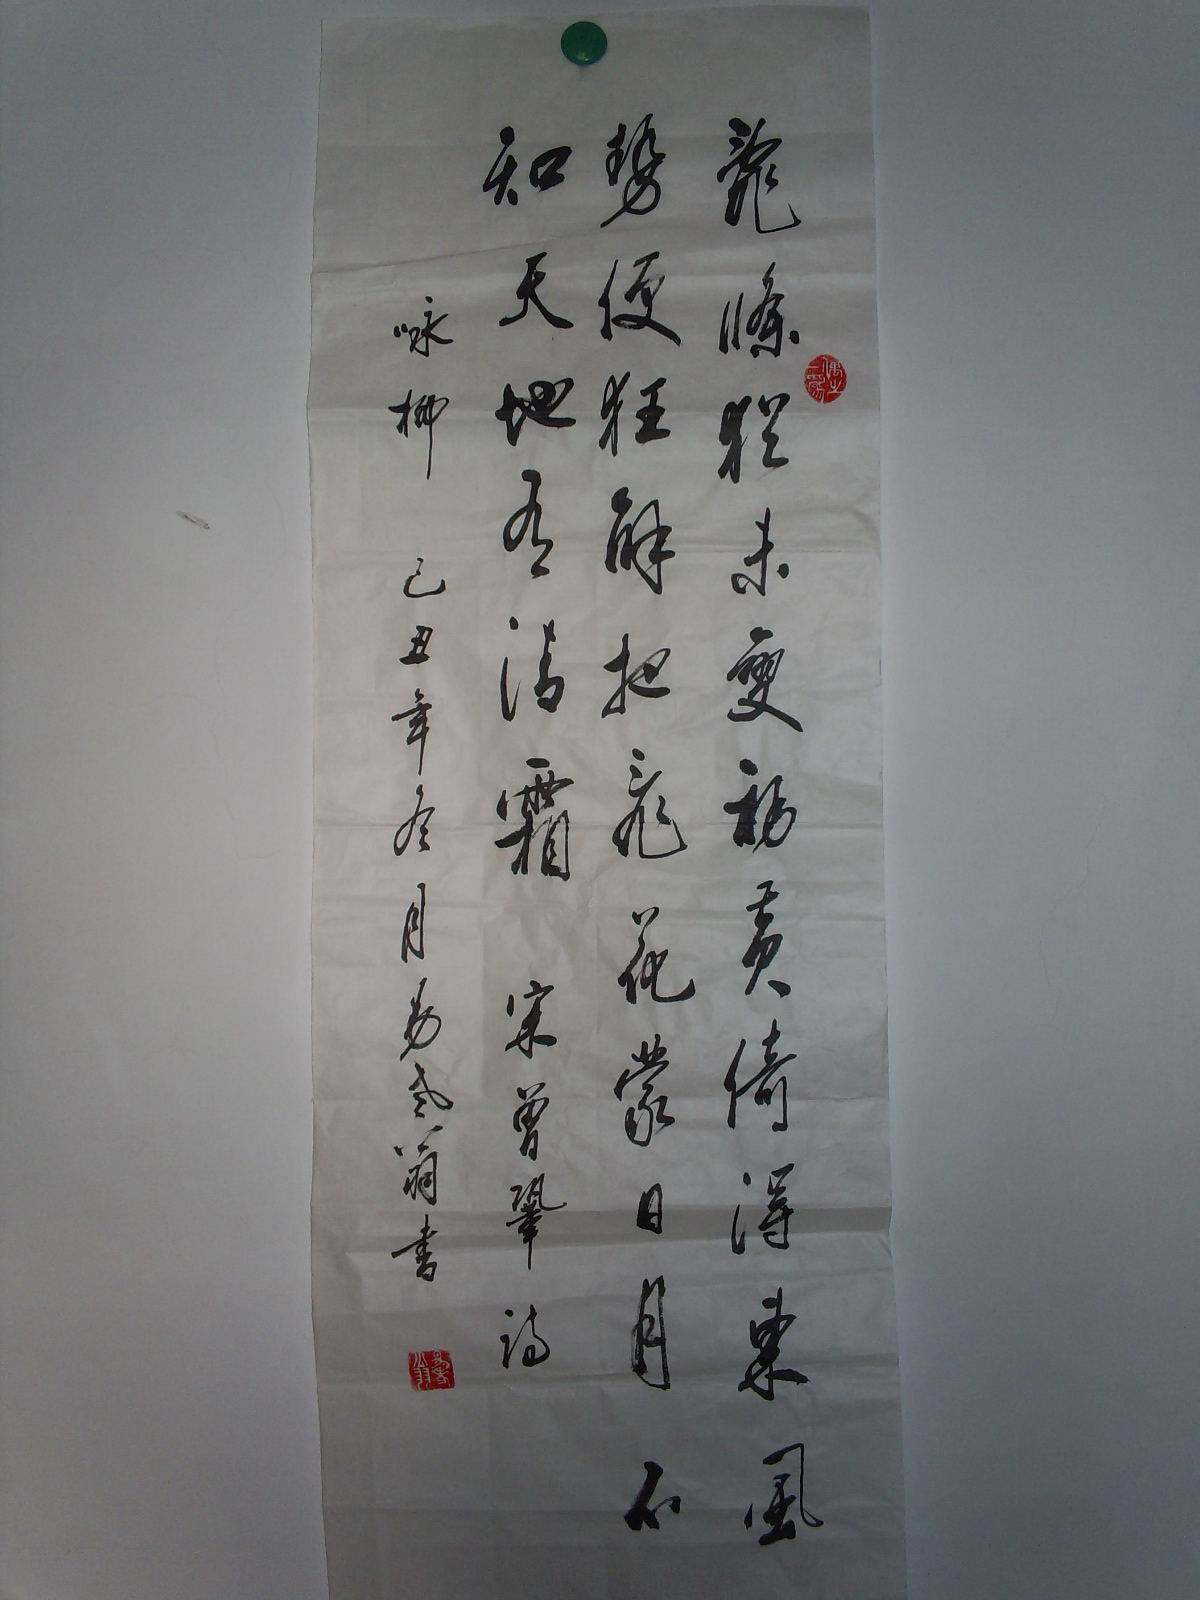 亂條猶未變初黄倚得東風
勢便狂解把飛花蒙日月不
知天地有清霜 宋曾鞏詩
咏柳 己丑年冬月易翁書